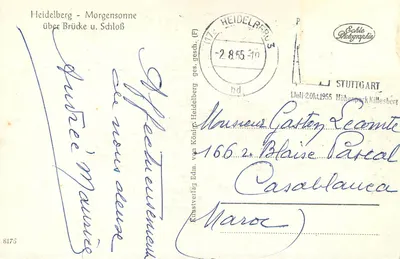 Heidelberg - Morgensonne
über Brücke u. Schloß
Affectueusement
de nous deux
Andrée Maurice
Kunstverlag Edm. von König, Heidelberg ges. gesch. (F)
HEIDELBERG
-2.8.55-
STUTTGART
Echte
Photographie
Monsieur Gaston Lecomte
166 r Blaise Pascal
Casablanca
(Maroc)
6176